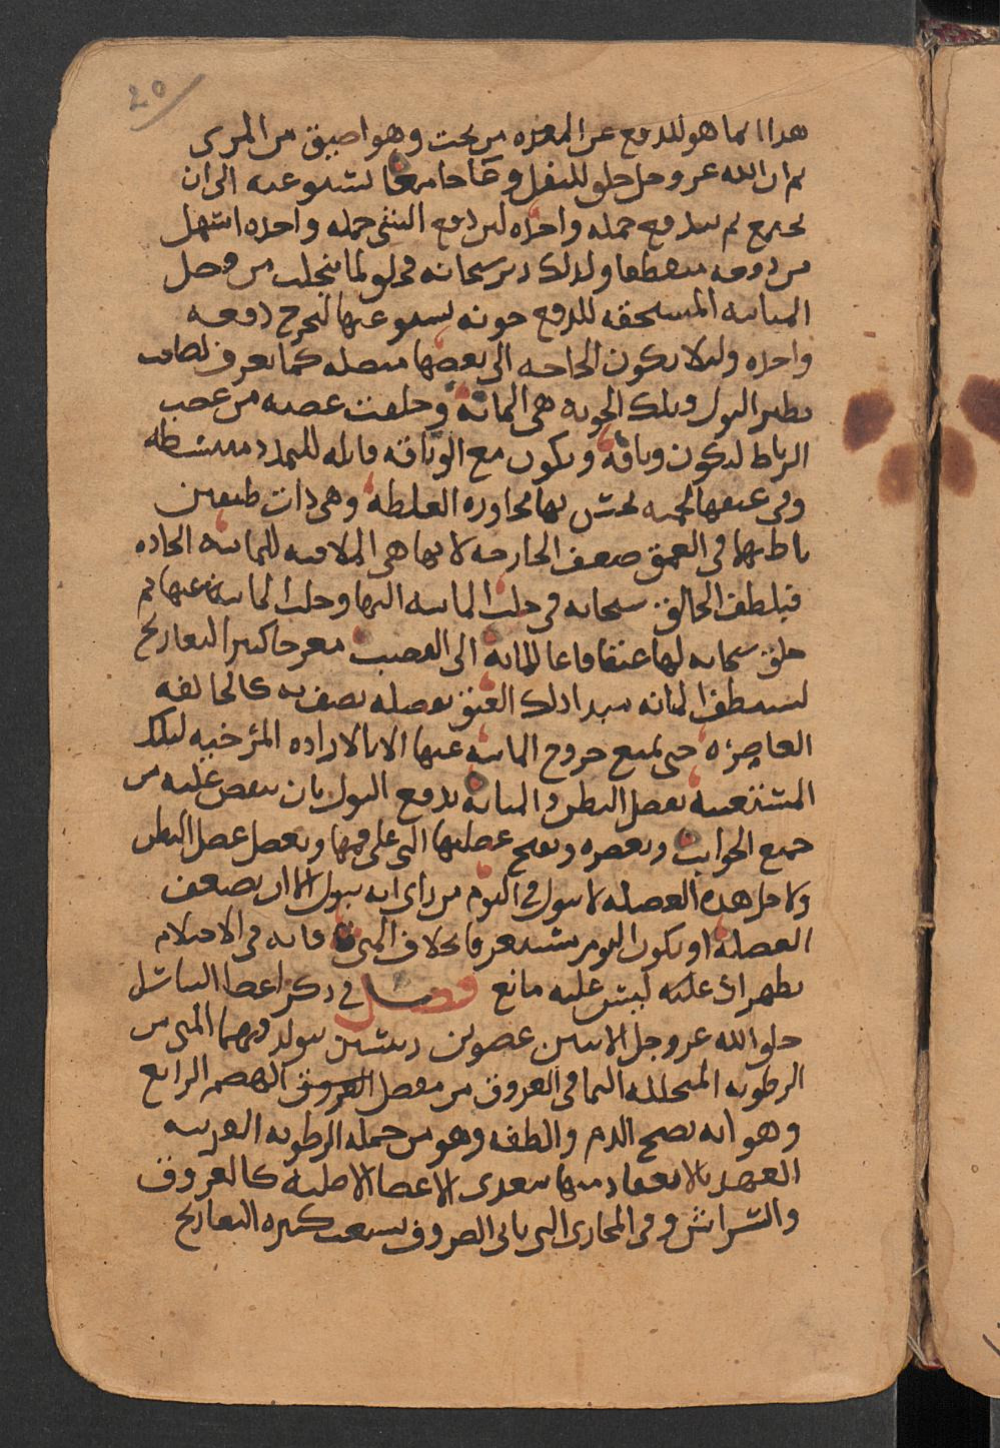 20
هدا انما هو للدفع عن المعده من تحت وهو اضيق من المرى
ثم ان الله عز وجل خلق للثفل وعا جامعا يستوعبه الى ان
يجتمع ثم يندفع جمله واحده لين دفع الشى جمله واحده اسهل
من دفعه متقطعا ولدلك دبر سبحانه فى لولما ينجلب من فضل
المايىه المستحقه للدفع جوبه يستوعبها ليخرج دفعه
واحده وليلا يكون الحاجه الى نفضها متصله كما يعرف لصاحب
تقطير البول وتلك الجوبه هى المثانه وخلقت عصبيه من عصب
الرباط لتكون وثاقه ويكون مع الوثاقه قابله للتمدد منبسطه
وفى عنقها لحميه تحس بها مجاوره العضله وهى دات طبقتين
باطنها فى العمق ضعف الخارجه لانها هى الملاقيه للماىيه الحاده
فتلطف الخالق سبحانه فى جلب الماىيه اليها وجلب الماىيه عنها ثم
خلق سبحانه لها عنقا دفاعا للمايه الى القضيب معرجا كثير التعاريج
لتستنظف المثانه سد ادلك العنق بعضله تضيق به كالخانقه
العاصره حتى تمنع خروج الماىيه عنها الا بالاراده المرخيه لتلك
المستتبعه بعضل البطن والمثانه يدفع البول بان تنقبض عليه من
جميع الجوانب وتعصره وتفتح عضلتها التى على فمها وبعضل عضل البطن
ولاجل هده العضله لا يبول فى النوم من راى انه يبول الا ان تضعف
العضله او يكون النوم مستغرقا بخلاف المنى فانه فى الاحتلام
يظهر اد عليه ليس عليه مانع فصل فى دكر اعضا التناسل
خلق الله عز وجل الانثيين عضوين رئيسين يتولد فيهما المنى من
الرطوبه المتحلبه اليهما فى العروق من فضل العروق الهضم الرابع
وهو انه نضيج الدم والطفه وهو من جمله الرطوبه القريبه
العهد بالانعقاد منها تغتدى الاعضا الاصليه كالعروق
والشرايين وفى المجارى التى ياتى الصروف تشعب كثيره التعاريج